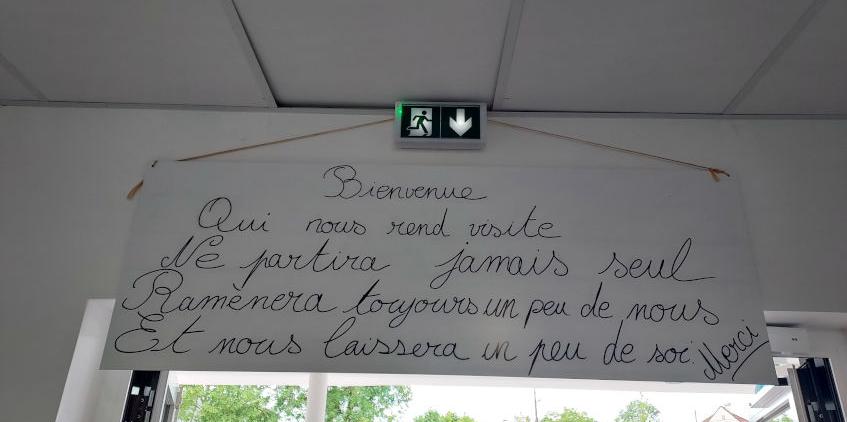 Bienvenue
Qui nous rend visite
Ne partira jamais seul
Ramènera toujours un peu de nous
Et nous laissera un peu de soi.
Merci